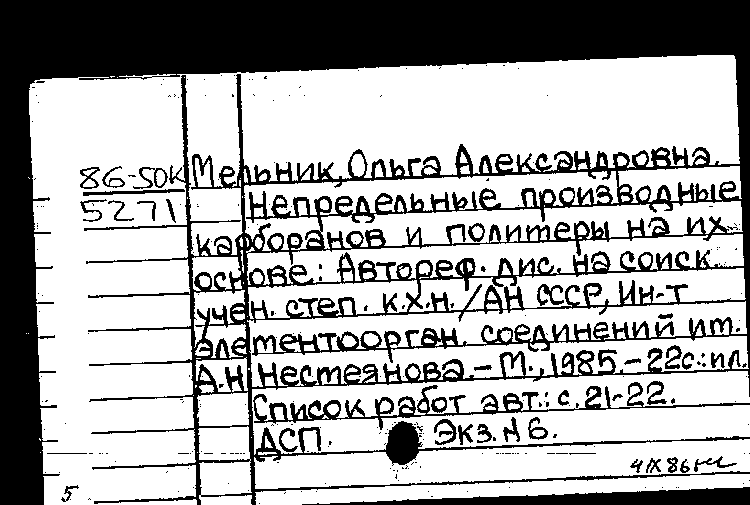 86-50К Мельник, Ольга Александровна.
5271 Непредельные производные
карборанов и полимеры на их
основе: Автореф. дис. на соиск.
учен. степ. к.х.н. / АН СССР, Ин-т
элементоорган. соединений им.
А.Н. Несмеянова. – М., 1985. – 22с.: ил.
Список работ авт.: с. 21-22.
ДСП. Экз. N 6.
4 IX 86
5